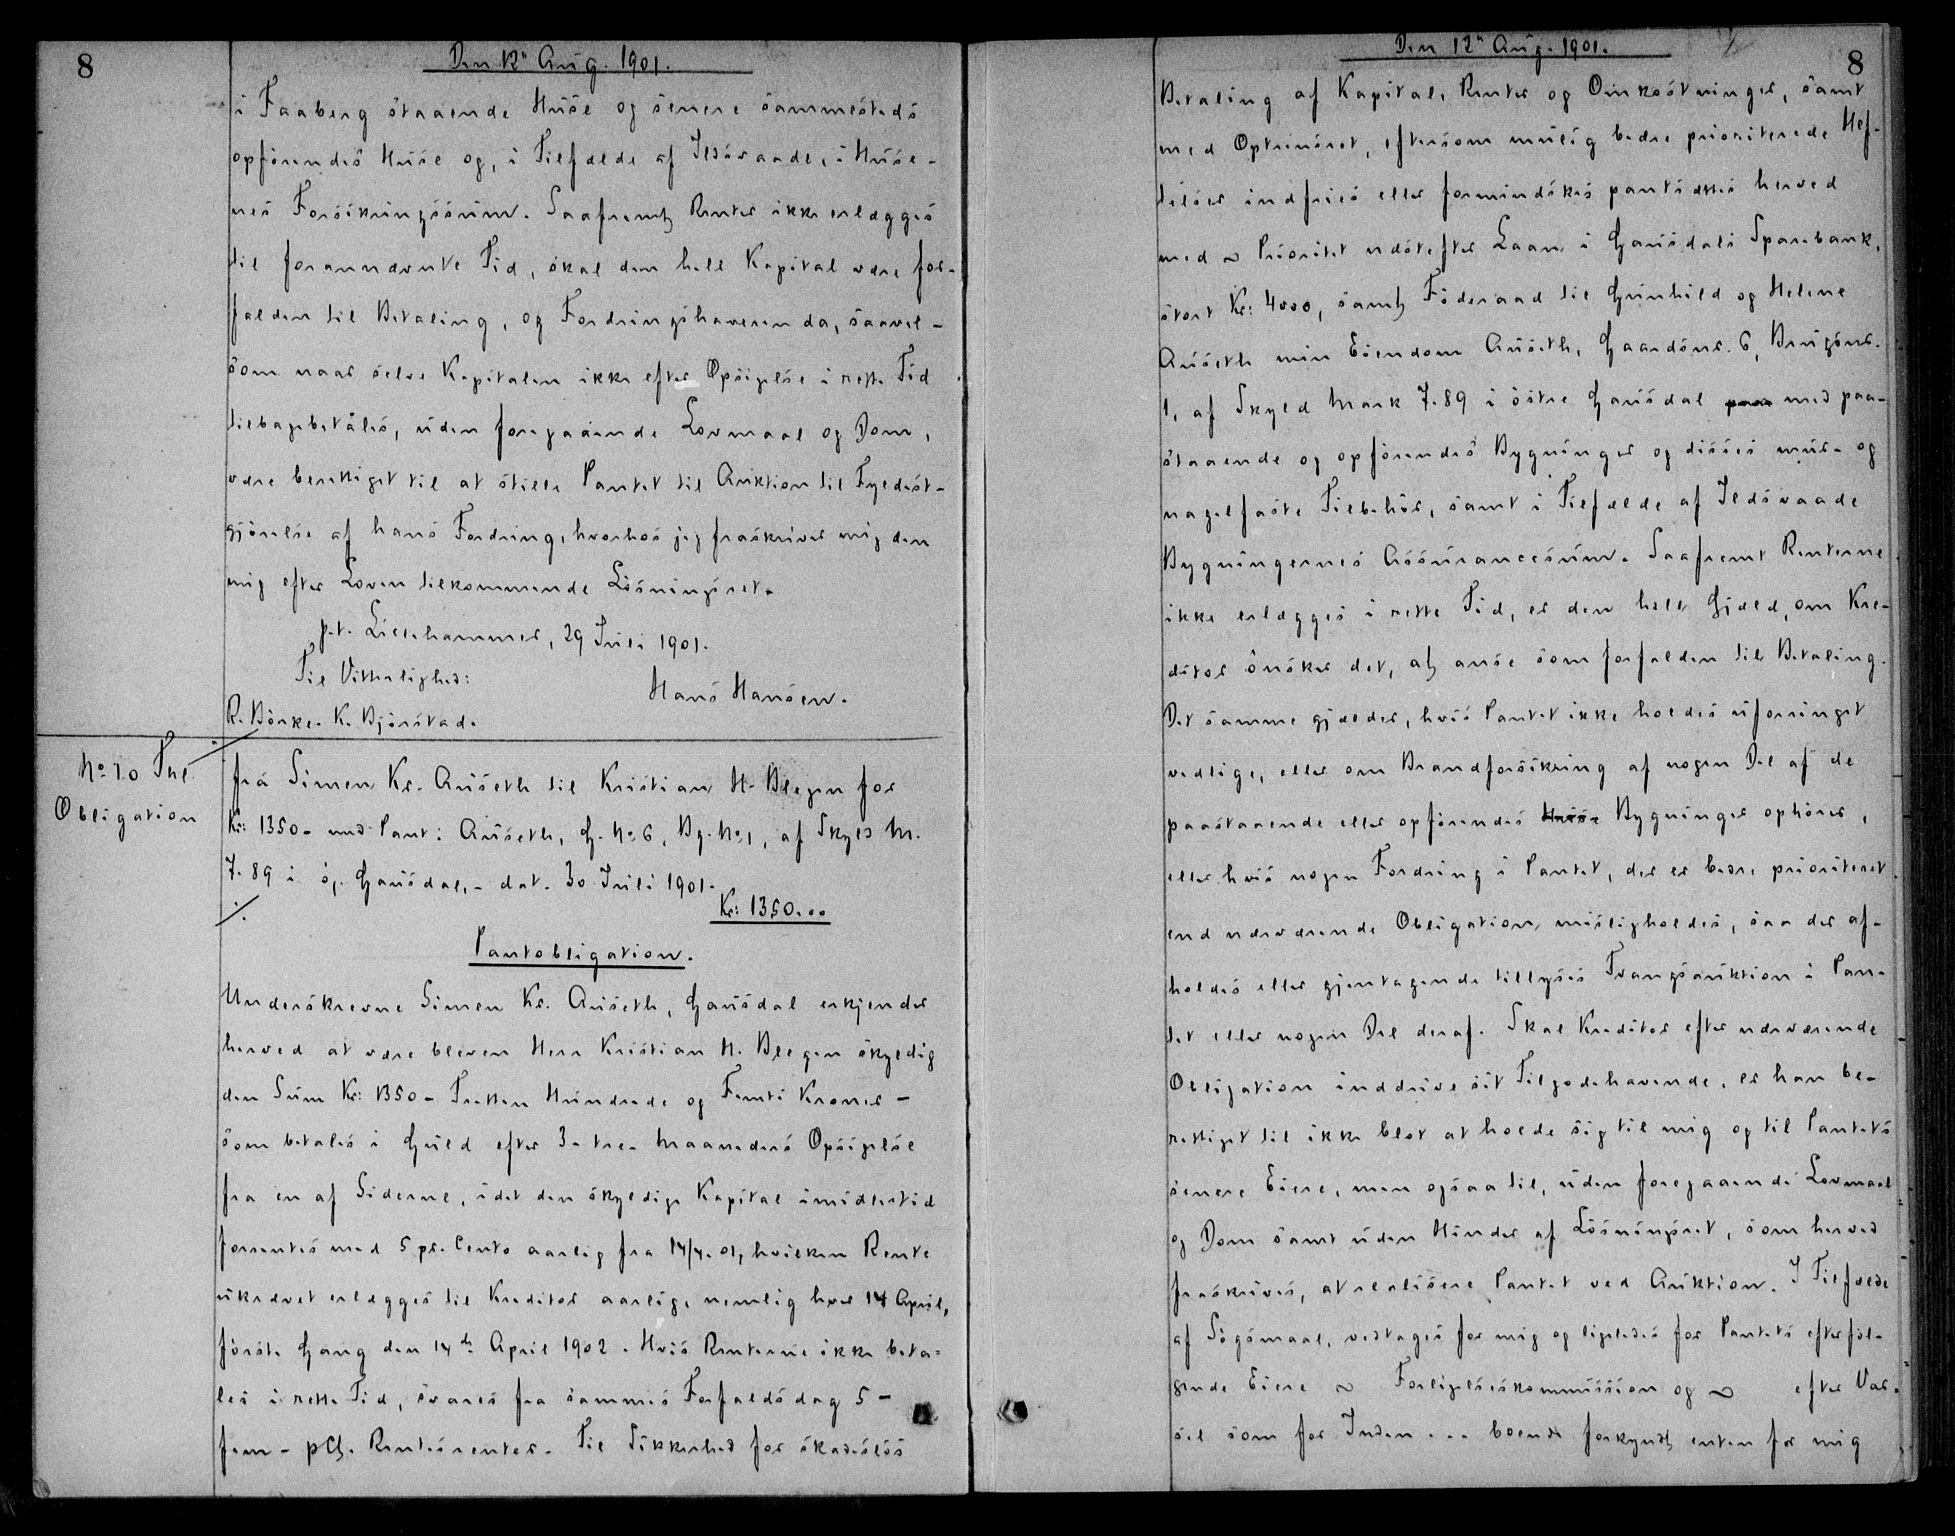 8
Den 12te Aug. 1901.
i Faaberg staaende Huse og senere sammesteds
opførendes Huse og, i Tilfælde af Ildsvaade, i Huse-
nes Forsikringssum. Saafremt Renter ikke erlægges
til forannævnte Tid, skal den hele Kapital være for-
falden til Betaling, og Fordringshaveren da, saavel-
som naar selve Kapitalen ikke efter Opsigelse i rette Tid
tilbagebetales, uden foregaaende Lovmaal og Dom,
være berettiget til at stille Pantet til Auktion til Fyldest-
gjørelse af hans Fordring, hvorhos jeg fraskriver mig den
mig efter Loven tilkommende Løsningsret.
p.t. Lillehammer, 29 Juli 1901.
Til Vitterlighed:
Hans Hansen.
R. Børke. K. Bjørstad.
No 10 Tul
Obligation
fra Simen Kr. Auseth til Kristian H. Blegen for
Kr: 1350- med Pant i Auseth, G. No 6, Bg. No 1, af Skyld M.
7.89 i ø. Gausdal, - dat. 30 Juli 1901.
./.
Kr: 1350.00
Pantobligation.
Underskrevne Simen Kr. Auseth, Gausdal erkjender
herved at være bleven Herr Kristian H. Blegen skyldig
den Sum Kr: 1350 - Tretten Hundrede og Femti Kroner -
som betales i Guld efter 3 - tre - Maaneders Opsigelse
fra en af Siderne, idet den skyldige Kapital imidlertid
forrentes med 5 pr. Cento aarlig fra 14/4. 01, hvilken Rente
ukrævet erlægges til Kreditor aarlig, nemlig hver 14 April,
første Gang den 14de April 1902. Hvis Renterne ikke beta-
les i rette Tid, svares fra sammes Forfaldsdag 5 -
fem - pCt. Rentesrenter. Til Sikkerhed for skadesløs
Den 12te Aug. 1901.
8
Betaling af Kapital, Renter og Omkostninger, samt
med Optrinsret, eftersom mulig bedre prioriterede Hef-
telser indfries eller formindskes pantsættes herved
med ~ Prioritet næstefter Laan i Gausdals Sparebank,
stort Kr: 4000, samt Føderaad til Gunhild og Helene
Auseth min Eiendom Auseth, Gaardsnr. 6, Brugsnr.
1, af Skyld Mark 7.89 i østre Gausdal paa med paa-
staaende og opførendes Bygninger og disses mur- og
nagelfaste Tilbehør, samt i Tilfælde af Ildsvaade
Bygningernes Assurancesum. Saafremt Renterne
ikke erlægges i rette Tid, er den hele Gjæld, om Kre-
ditor ønsker det, at anse som forfalden til Betaling.
Det samme gjælder, hvis Pantet ikke holdes uforringet
vedlige, eller om Brandforsikring af nogen Del af de
paastaaende eller opførendes Huse Bygninger ophører,
eller hvis nogen Fordring i Pantet, der er bedre prioriteret
end nærværende Obligation, misligholdes, saa der af-
holdes eller gjentagende tillyses Tvangsauktion i Pan-
tet eller nogen Del deraf. Skal Kreditor efter nærværende
Obligation inddrive sit Tilgodehavende, er han be-
rettiget til ikke blot at holde sig til mig og til Pantets
senere Eiere, men ogsaa til, uden foregaaende Lovmaal
og Dom samt uden Hinder af Løsningsret, som herved
fraskrives, at realisere Pantet ved Auktion. I Tilfælde
af Søgsmaal, vedtages for mig og ligeledes for Pantets efterføl-
gende Eiere ~ Forligelseskommission og ~ efter Var-
sel som for Inden... boende forkyndt enten for mig